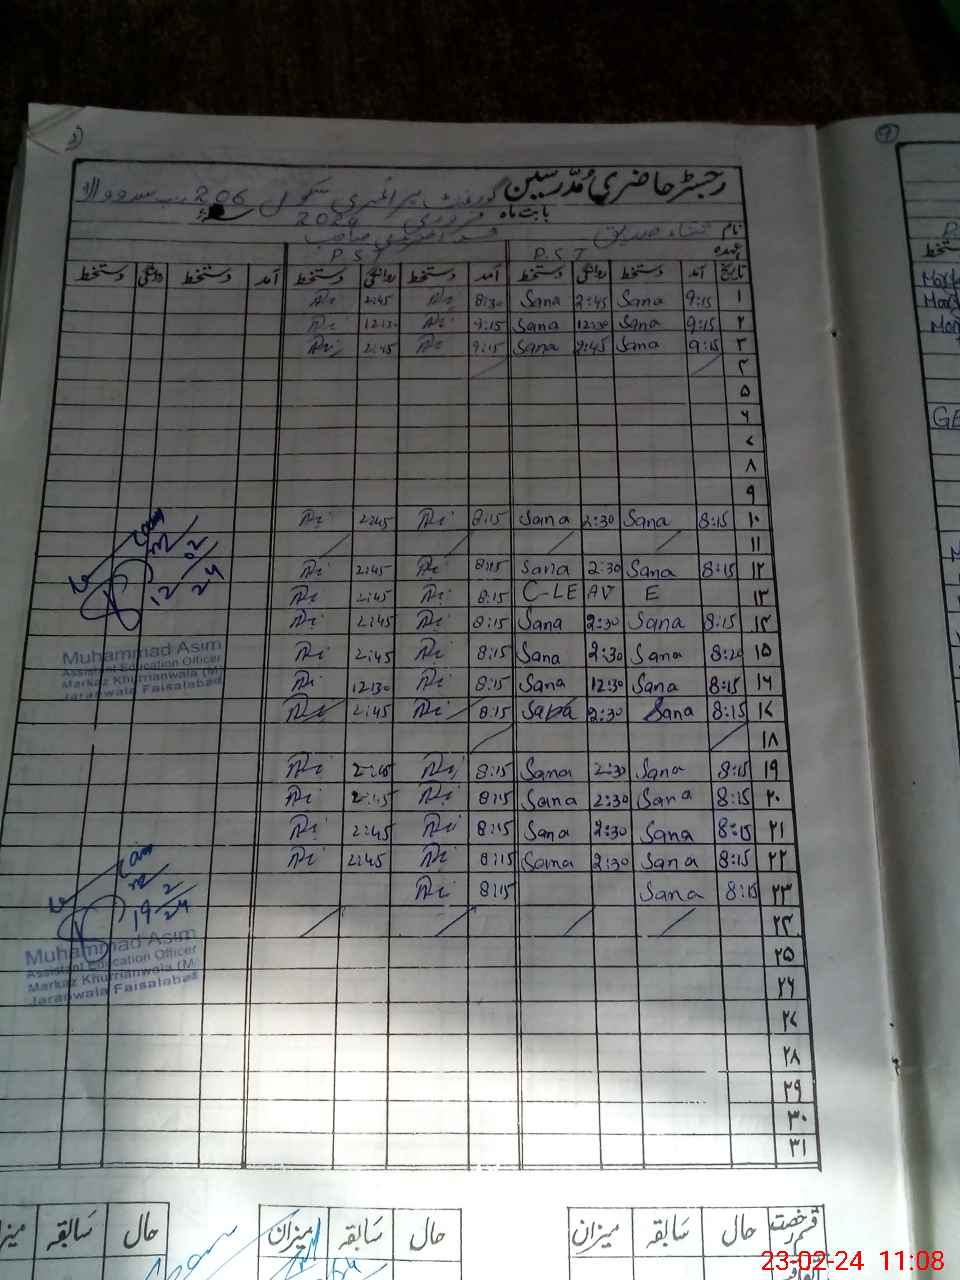 رجسٹر حاضری مُدرسین گورنمنٹ پرائمری سکول 206
بابت ماہ فروری 2024
نام ثناء صدیق
عہدہ P.S.T P.S.T
تاریخ آمد دستخط روانگی دستخط آمد دستخط روانگی دستخط آمد دستخط روانگی دستخط
۱ 9:15 Sana 2:45 Sana 8:30 2:45
۲ 9:15 Sana 12:30 Sana 9:15 12:30
۳ 9:15 Sana 2:45 Sana 9:15 2:45
۴
۵
۶
۷
۸
۹
۱۰ 8:15 Sana 2:30 Sana 8:15 2:45
۱۱
۱۲ 8:15 Sana 2:30 Sana 8:15 2:45
۱۳ C-LEAVE 8:15 2:45
۱۴ 8:15 Sana 2:30 Sana 8:15 2:45
۱۵ 8:20 Sana 2:30 Sana 8:15 2:45
۱۶ 8:15 Sana 12:30 Sana 8:15 12:30
۱۷ 8:15 Sana 2:30 Sana 8:15 2:45
۱۸
۱۹ 8:15 Sana 2:30 Sana 8:15 2:45
۲۰ 8:15 Sana 2:30 Sana 8:15 2:45
۲۱ 8:15 Sana 2:30 Sana 8:15 2:45
۲۲ 8:15 Sana 2:30 Sana 8:15 2:45
۲۳ 8:15 Sana 8:15
۲۴
۲۵
۲۶
۲۷
۲۸
۲۹
۳۰
۳۱
12/02/24
Muhammad Asim
Assistant Education Officer
Markaz Khurrianwala (M)
Jaranwala Faisalabad
19/2/24
Muhammad Asim
Assistant Education Officer
Markaz Khurrianwala (M)
Jaranwala Faisalabad
قسم رخصت حال سابقہ میزان حال سابقہ میزان حال سابقہ
23-02-24 11:08